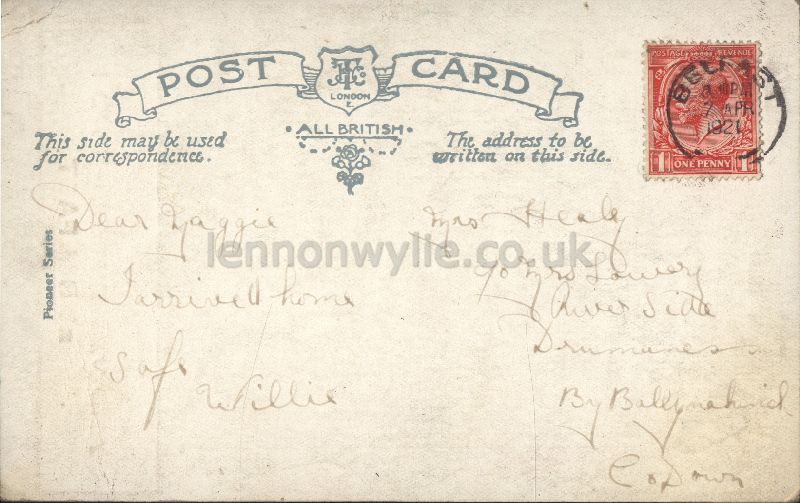 POST CARD
LONDON
E.
ALL BRITISH
This side may be used
for correspondence.
The address to be
written on this side.
POSTAGE REVENUE
1 ONE PENNY 1
BELFAST
7 APR
1921
Pioneer Series
Dear Maggie
I arrived home
safe
Willie
Mrs Healy
c/o Mrs Lowery
River Side
Drumaness
By Ballynahinch
Co Down
lennonwylie.co.uk